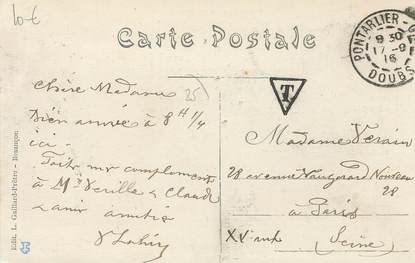 10€
Carte Postale
PONTARLIER-G
8 30
17-9
16
DOUBS
T
25
Chère Madame
Bien arrivé à 8 H 1/4
ici.
Faites mes compliments
à Mr Claude
& amitiés
Madame Verain
28 avenue Vaugirard Nouveau
28
à Paris
XV
(Seine)
Edit. L. Gaillard-Prêtre - Besançon